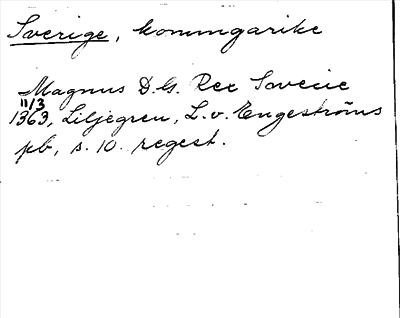 Sverige, konungarike
Magnus D.G. Rex Sovecie
11/3
1363, Liljegren, L.v. Engeströms
pb, s. 10. regest.